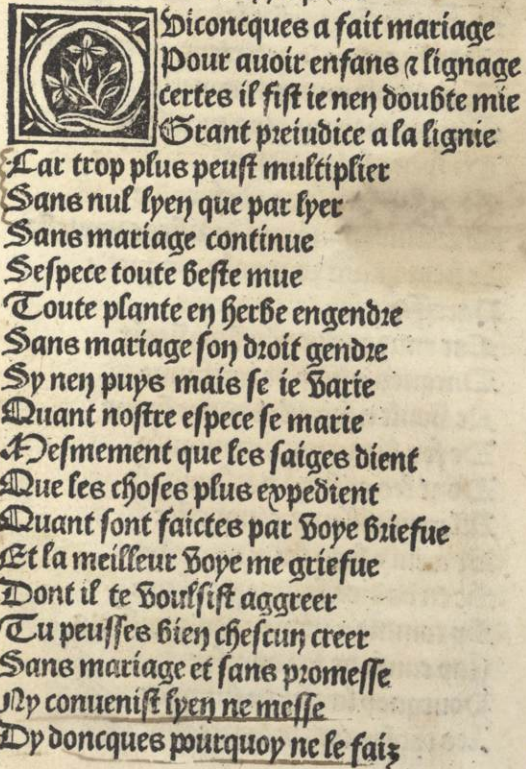 Quiconcques a fait mariage
Pour auoir enfans ⁊ lignage
certes il fist ie nen doubte mie
Grant preiudice a la lignie
Car trop plus peust multiplier
Sans nul lyen que par lyer
Sans mariage continue
Sespece toute beste mue
Toute plante en herbe engendre
Sans mariage son droit gendre
Sy nen puys mais se ie varie
Quant nostre espece se marie
Mesmement que les saiges dient
Que les choses plus expedient
Quant sont faictes par voye briefue
Et la meilleur voye me griefue
Dont il te voulsist aggreer
Tu peusses bien chescun creer
Sans mariage et sans promesse
Ny conuenist lyen ne messe
Dy doncques pourquoy ne le faiz